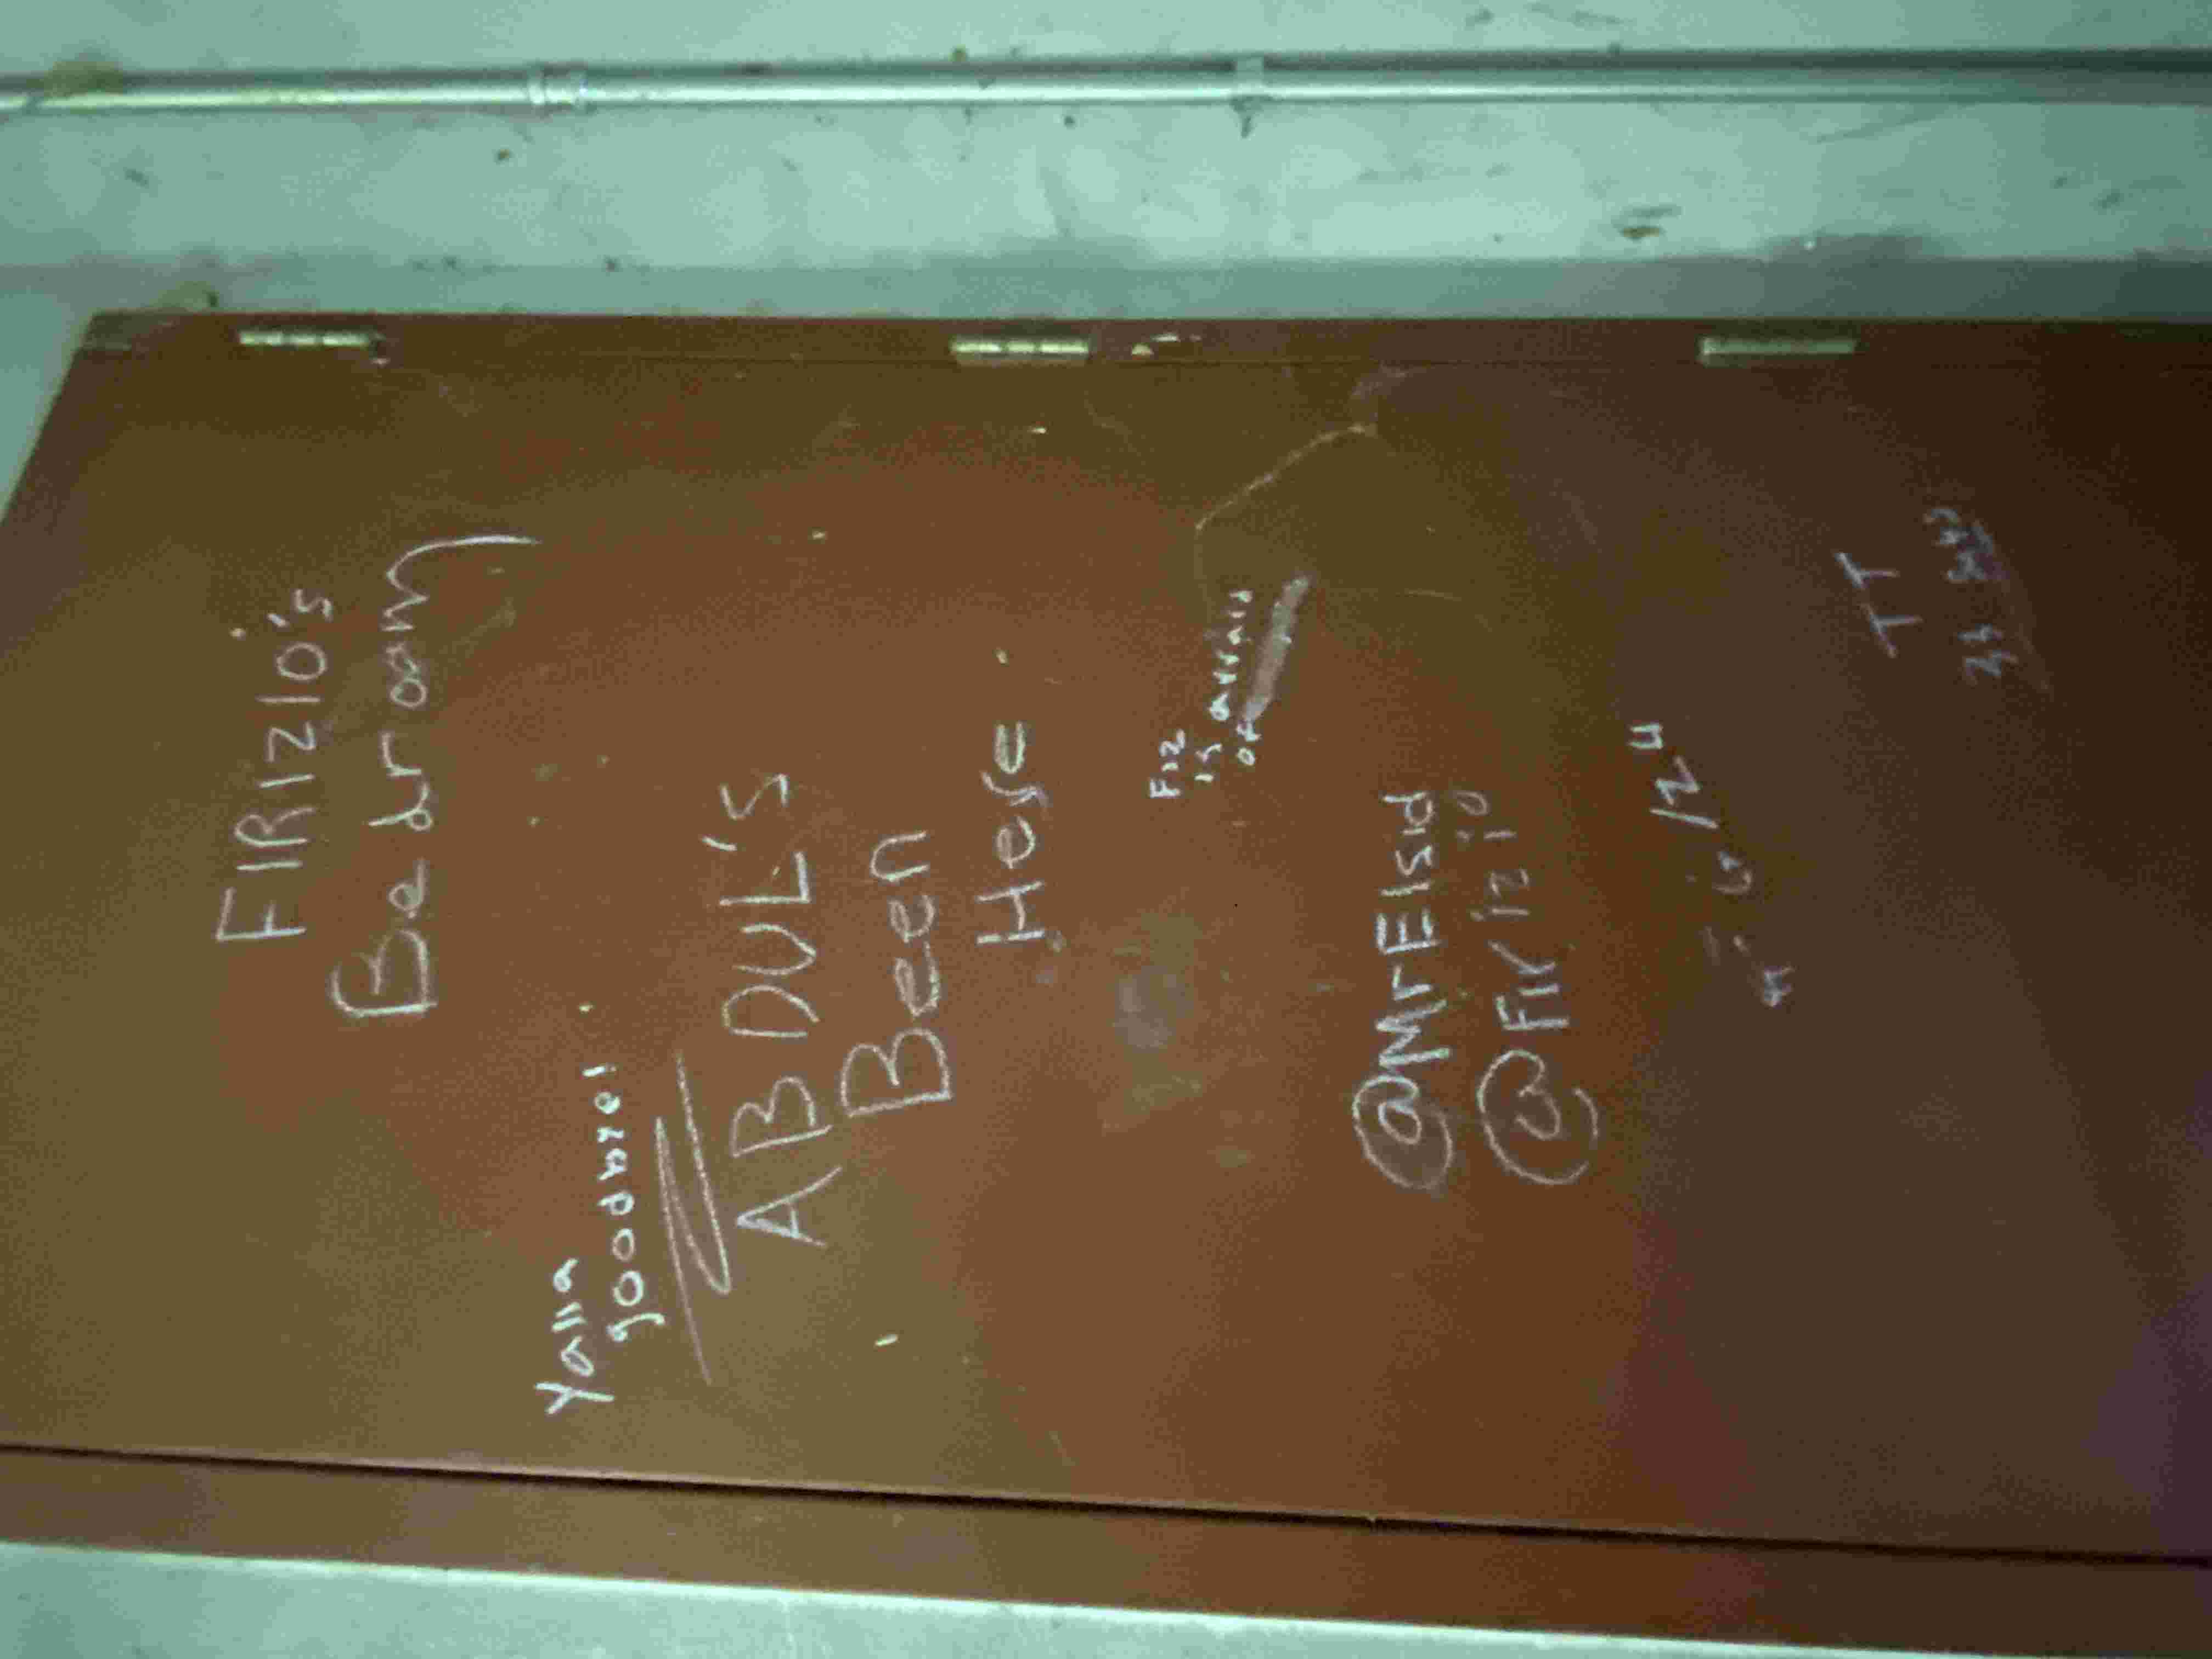 FIRIZIO's
Bedroom
Yalla
goodbye!
ABDUL'S
Been
Here
Fiz
is
afraid
of
@MrElsid
@Firizio
TT